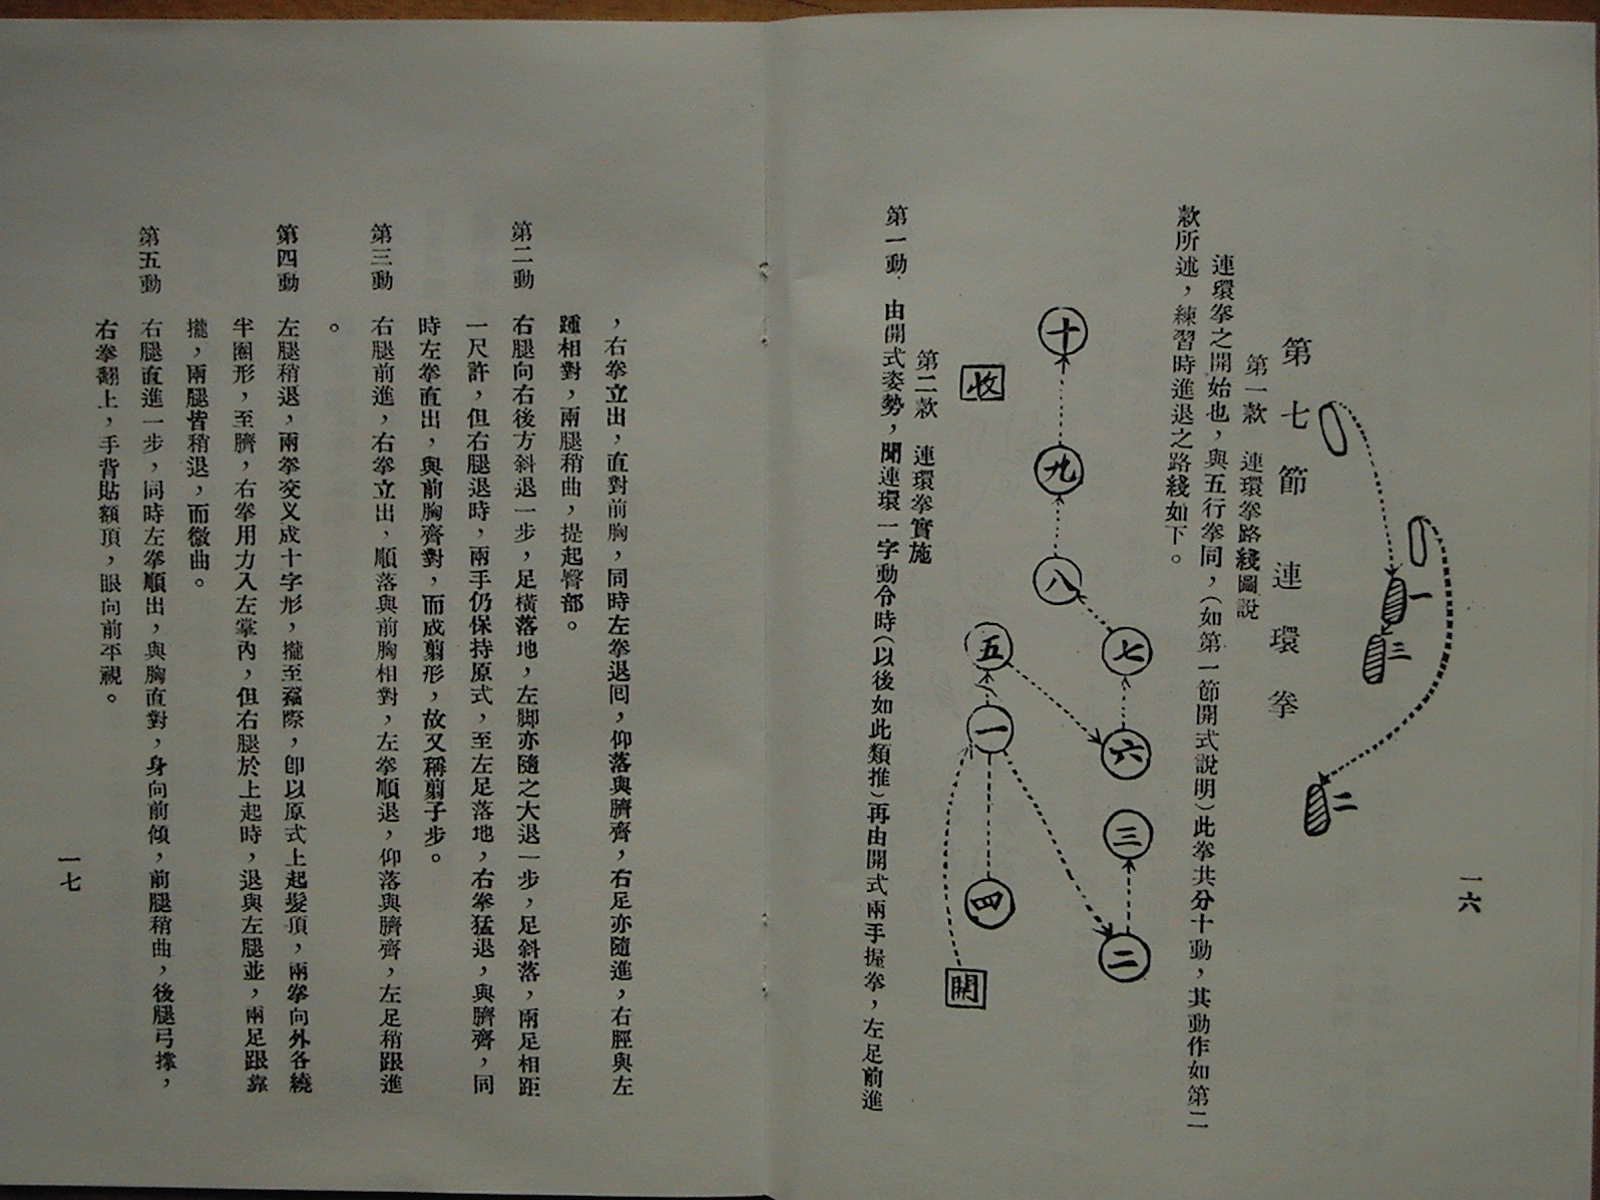 一
三
二
第七節 連環拳
第一款 連環拳路綫圖說
連環拳之開始也，與五行拳同，（如第一節開式說明）此拳共分十動，其動作如第二
款所述，練習時進退之路綫如下。
十
九
八
七
六
五
一
三
四
二
收
開
第二款 連環拳實施
第一動 由開式姿勢，聞連環一字動令時（以後如此類推）再由開式兩手握拳，左足前進
一六
，右拳立出，直對前胸，同時左拳退囘，仰落與臍齊，右足亦隨進，右脛與左
踵相對，兩腿稍曲，提起臀部。
第二動 右腿向右後方斜退一步，足橫落地，左脚亦隨之大退一步，足斜落，兩足相距
一尺許，但右腿退時，兩手仍保持原式，至左足落地，右拳猛退，與臍齊，同
時左拳直出，與前胸齊對，而成剪形，故又稱剪子步。
第三動 右腿前進，右拳立出，順落與前胸相對，左拳順退，仰落與臍齊，左足稍跟進
。
第四動 左腿稍退，兩拳交叉成十字形，攏至臍際，卽以原式上起髮頂，兩拳向外各繞
半圈形，至臍，右拳用力入左掌內，但右腿於上起時，退與左腿並，兩足跟靠
攏，兩腿皆稍退，而微曲。
第五動 右腿直進一步，同時左拳順出，與胸直對，身向前傾，前腿稍曲，後腿弓撑，
右拳翻上，手背貼額頂，眼向前平視。
一七